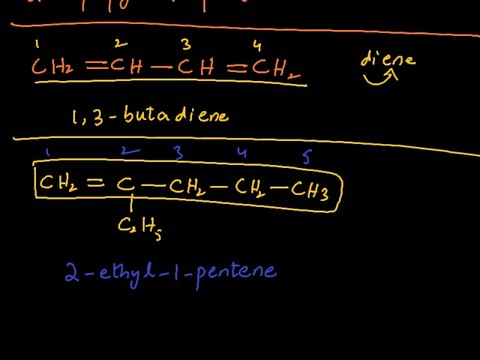 1 2 3 4
CH2 = CH — CH = CH2
diene
1,3-butadiene
1 2 3 4 5
CH2 = C — CH2 — CH2 — CH3
C2H5
2-ethyl-1-pentene